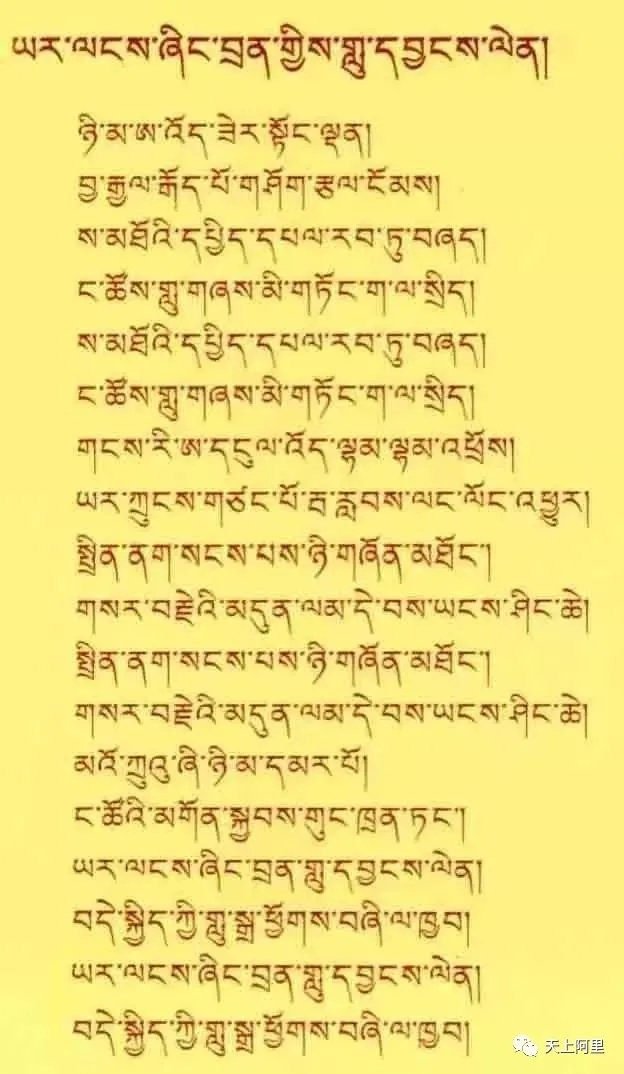 ཡར་ལངས་ཞིང་བྲན་གྱིས་གླུ་དབྱངས་ལེན།
ཉི་མ་ཨ་འོད་ཟེར་སྟོང་ལྡན།
བྱ་རྒྱལ་རྒོད་པོ་གཤོག་རྩལ་ངོམས།
ས་མཐོའི་དཔྱིད་དཔལ་རབ་ཏུ་བཞད།
ང་ཚོས་གླུ་གཞས་མི་གཏོང་ག་ལ་སྲིད།
ས་མཐོའི་དཔྱིད་དཔལ་རབ་ཏུ་བཞད།
ང་ཚོས་གླུ་གཞས་མི་གཏོང་ག་ལ་སྲིད།
གངས་རི་ཨ་དངུལ་འོད་ལྷམ་ལྷམ་འཕྲོས།
ཡར་ཀླུངས་གཙང་པོ་རྦ་རླབས་ལང་ལོང་འཕྱུར།
སྤྲིན་ནག་སངས་པས་ཉི་གཞོན་མཐོང་།
གསར་བརྗེའི་མདུན་ལམ་དེ་བས་ཡངས་ཤིང་ཆེ།
སྤྲིན་ནག་སངས་པས་ཉི་གཞོན་མཐོང་།
གསར་བརྗེའི་མདུན་ལམ་དེ་བས་ཡངས་ཤིང་ཆེ།
མའོ་ཀྲུའུ་ཞི་ཉི་མ་དམར་པོ།
ང་ཚོའི་མགོན་སྐྱབས་གུང་ཁྲན་ཏང་།
ཡར་ལངས་ཞིང་བྲན་གླུ་དབྱངས་ལེན།
བདེ་སྐྱིད་ཀྱི་གླུ་སྒྲ་ཕྱོགས་བཞི་ལ་ཁྱབ།
ཡར་ལངས་ཞིང་བྲན་གླུ་དབྱངས་ལེན།
བདེ་སྐྱིད་ཀྱི་གླུ་སྒྲ་ཕྱོགས་བཞི་ལ་ཁྱབ།
天上阿里